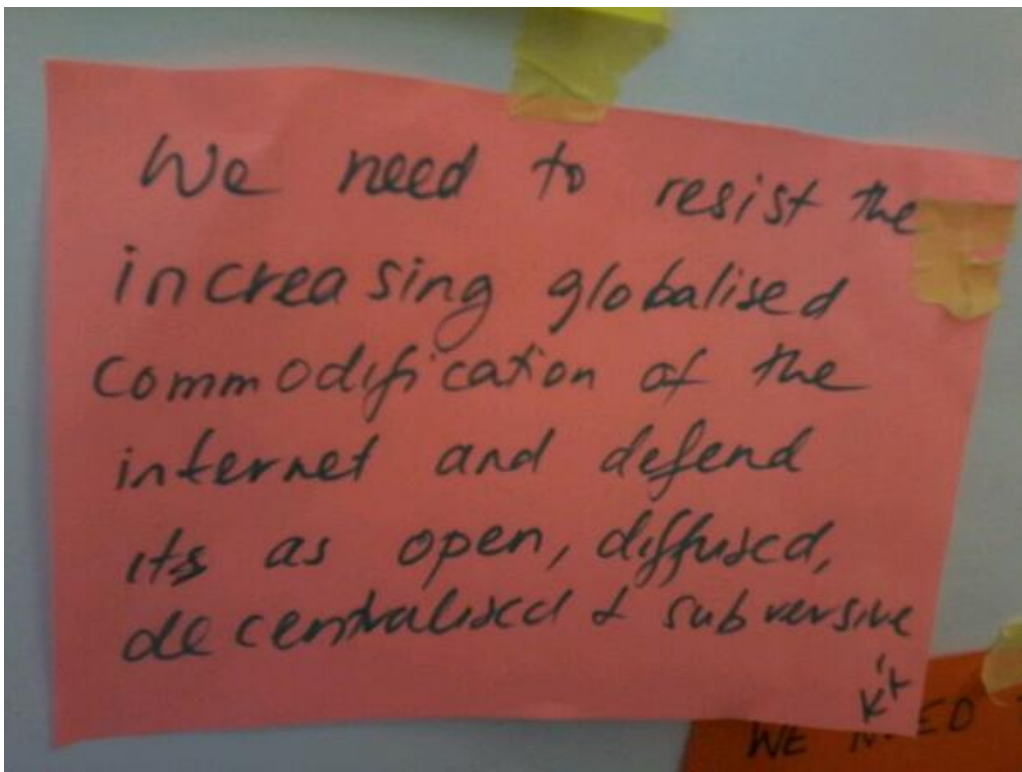 We need to resist the
increasing globalised
commodification of the
internet and defend
its as open, diffused,
decentralised & subversive
WE NEED